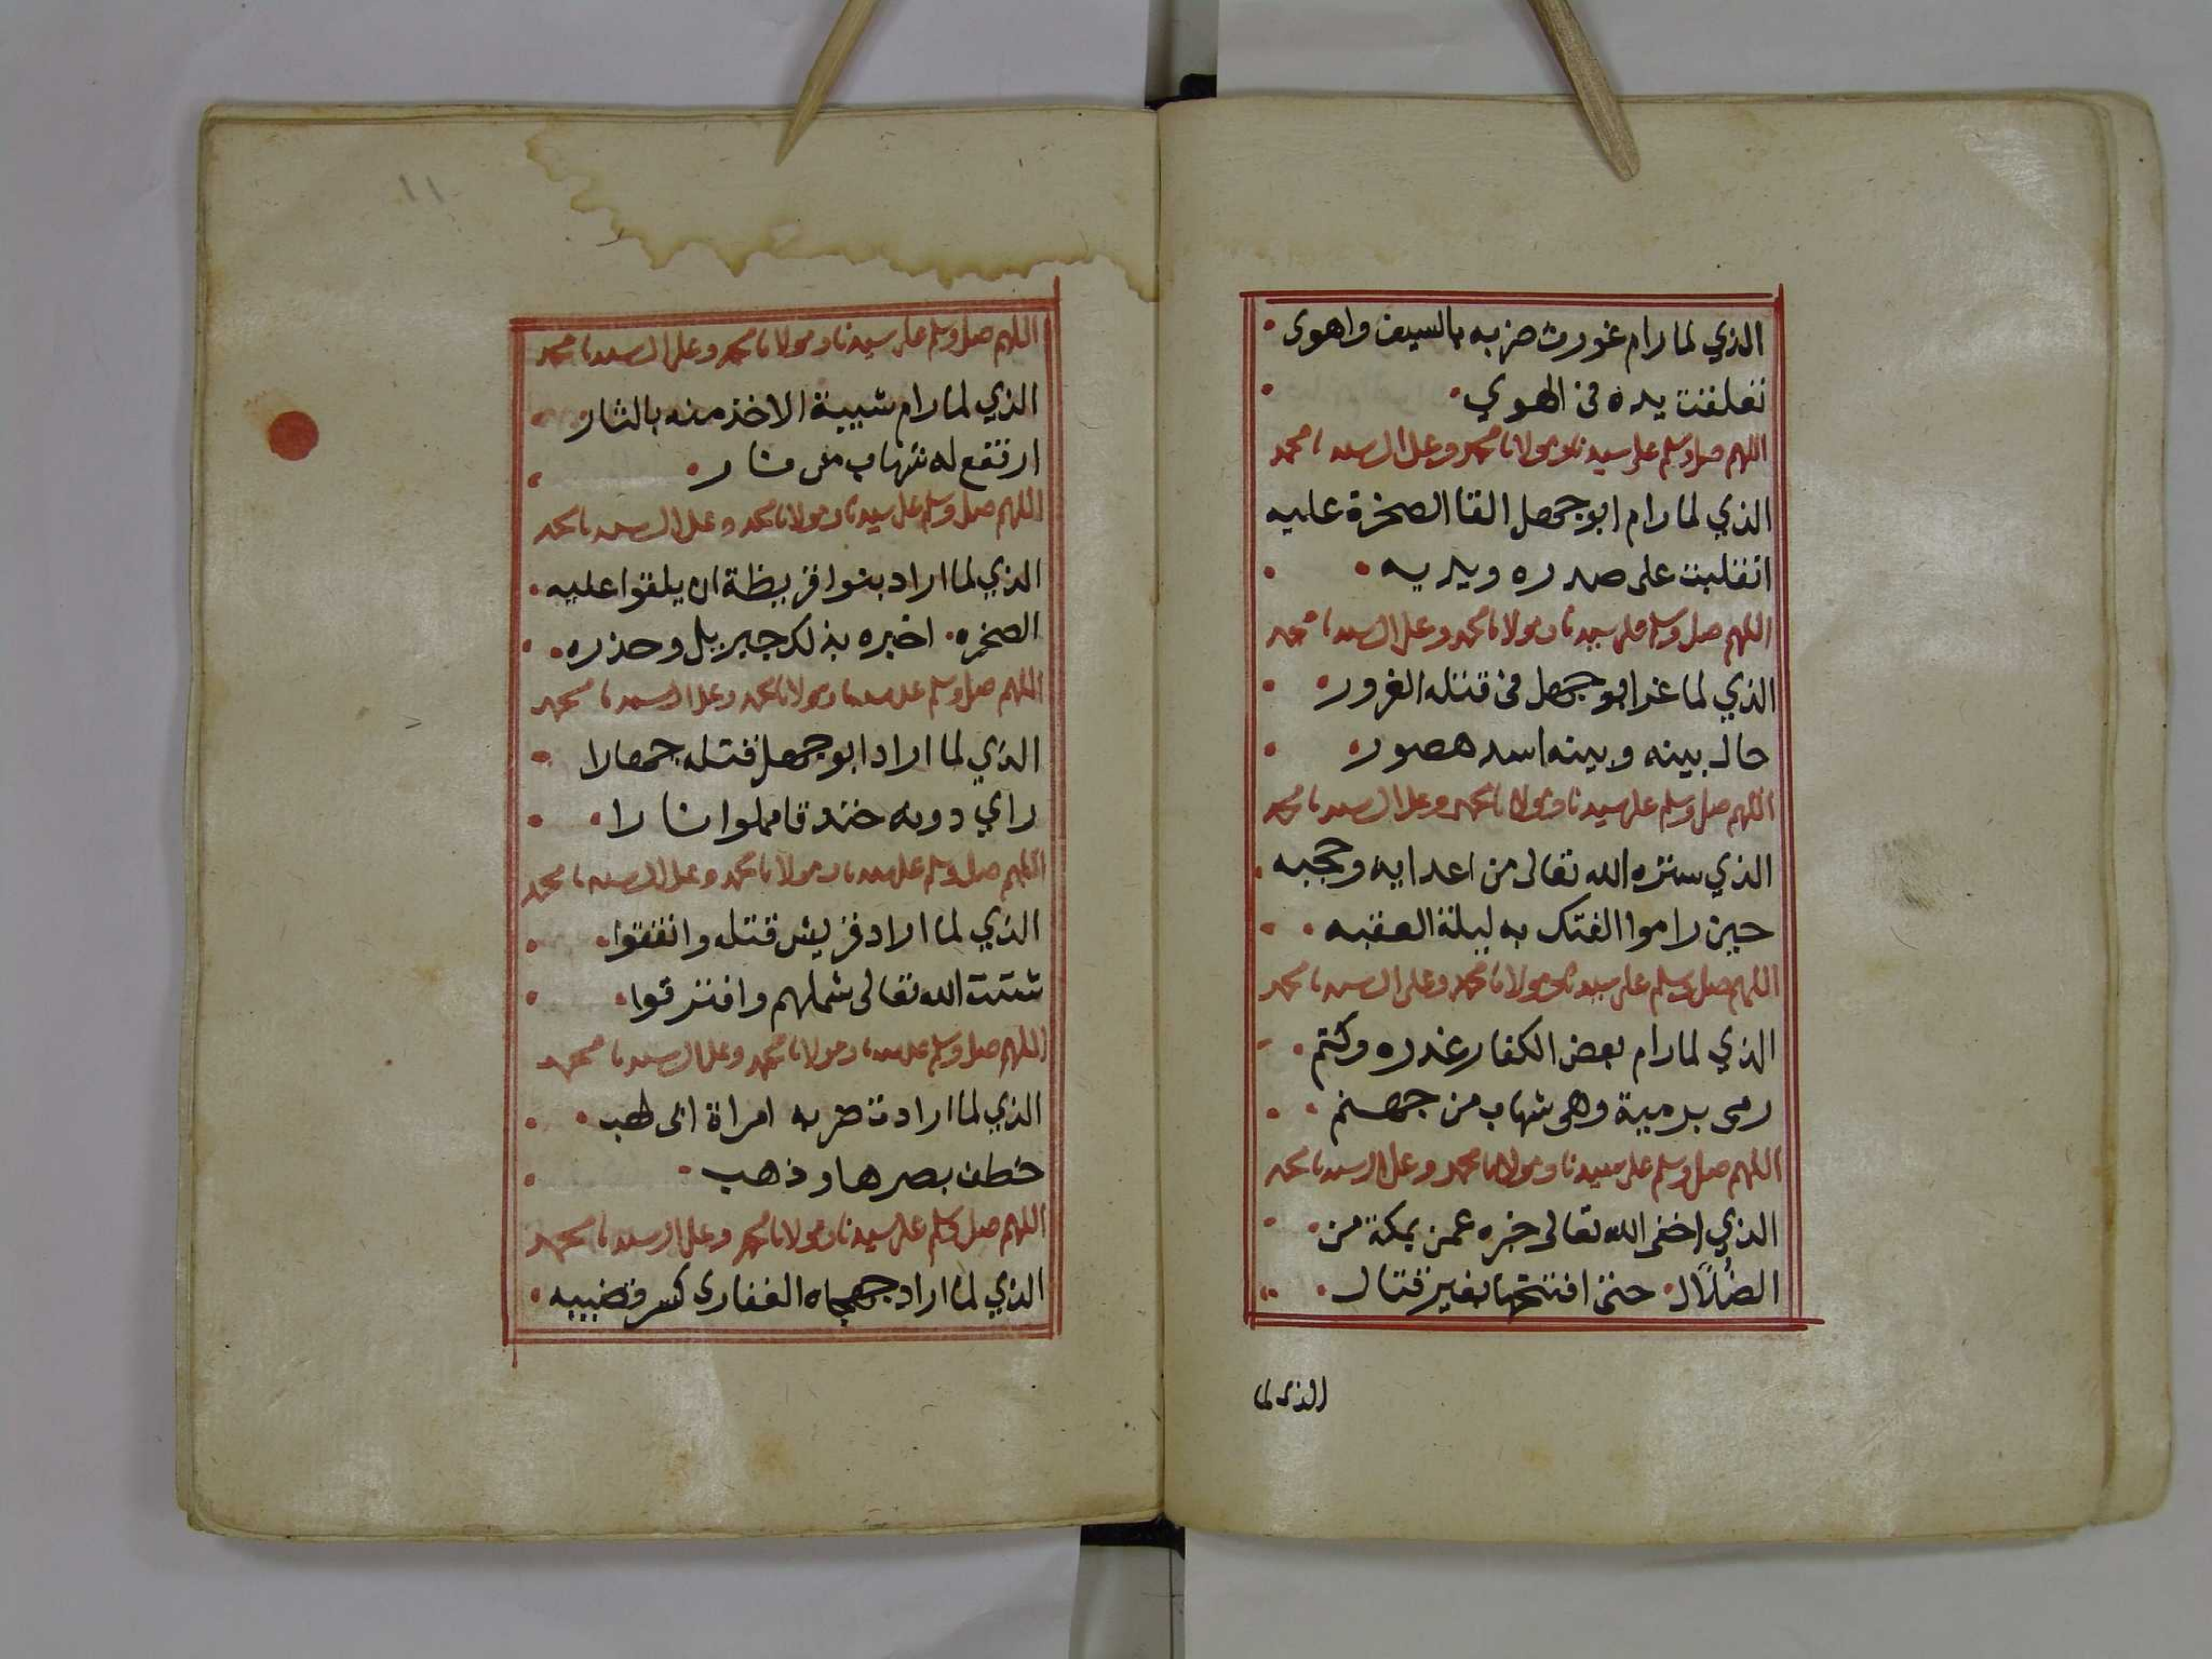 الذي لما رام غورث ضربه بالسيف واهوى
تعلقت يده في الهوي
اللهم صل وسلم على سيدنا ومولانا محمد وعلى ال سيدنا محمد
الذي لما رام ابو جهل القا الصخرة عليه
انقلبت على صدره ويديه
اللهم صل وسلم على سيدنا ومولانا محمد وعلى ال سيدنا محمد
الذي لما غر ابو جهل في قتله الغرور
حال بينه وبينه اسد هصور
اللهم صل وسلم على سيدنا ومولانا محمد وعلى ال سيدنا محمد
الذي ستره الله تعالى من اعدايه وحجبه
حين راموا الفتك به ليلة العقبه
اللهم صل وسلم على سيدنا ومولانا محمد وعلى ال سيدنا محمد
الذي لما رام بعض الكفار غدره وكتم
رمى برمية وهي شهاب من جهنم
اللهم صل وسلم على سيدنا ومولانا محمد وعلى ال سيدنا محمد
الذي اخفى الله تعالى خبره عمن بمكة من
الضُلاَّل حتى افتتحها بغير قتال
الذي لما
١١
اللهم صل وسلم على سيدنا ومولانا محمد وعلى ال سيدنا محمد
الذي لما رام شيبة الاخذ منه بالثار
ارتفع له شهاب من نار
اللهم صل وسلم على سيدنا ومولانا محمد وعلى ال سيدنا محمد
الذي لما اراد بنوا قريظة ان يلقوا عليه
الصخره اخبره بذلك جبريل وحذره
اللهم صل وسلم على سيدنا ومولانا محمد وعلى ال سيدنا محمد
الذي لما اراد ابو جهل قتله جهارا
راي دونه خندقا مملوا نارا
اللهم صل وسلم على سيدنا ومولانا محمد وعلى ال سيدنا محمد
الذي لما اراد قريش قتله واتفقوا
شتت الله تعالى شملهم وافترقوا
اللهم صل وسلم على سيدنا ومولانا محمد وعلى ال سيدنا محمد
الذي لما ارادت ضربه امراة ابي لهب
خطف بصرها وذهب
اللهم صل وسلم على سيدنا ومولانا محمد وعلى ال سيدنا محمد
الذي لما اراد جهجاه الغفاري كسر قضيبه